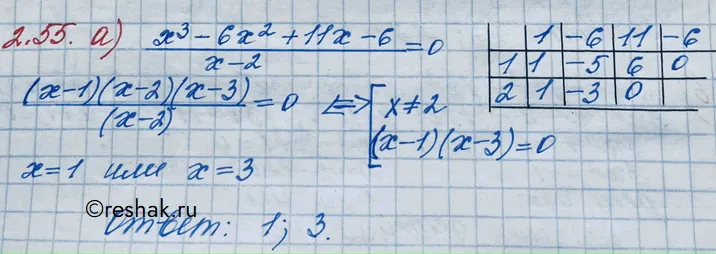 2.55. а) (x³ - 6x² + 11x - 6)/(x - 2) = 0
1 -6 11 -6
1 1 -5 6 0
2 1 -3 0
((x-1)(x-2)(x-3))/((x-2)) = 0 <=> [ x ≠ 2
(x-1)(x-3) = 0
x = 1 или x = 3
©reshak.ru
Ответ: 1; 3.